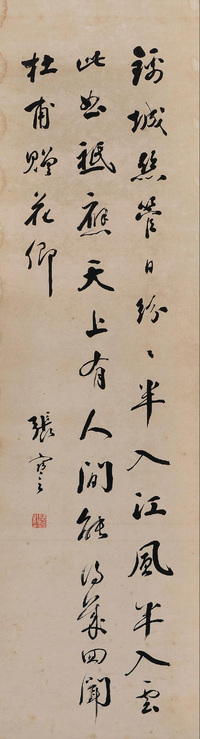 錦城絲管日紛〻半入江風半入雲
此曲祇應天上有人間能得幾回聞
杜甫贈花卿
張謇之